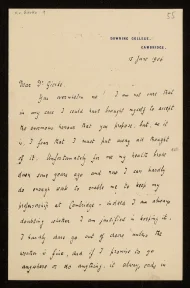 55
DOWNING COLLEGE,
CAMBRIDGE.
5 June 1906
Dear Dr Giorde,
You overwhelm me! I am not sure that
in any case I could have brought myself to accept
the enormous honour that you propose, but, as it
is, I fear that I must put away all thought
of it. Unfortunately for me my health broke
down some years ago and now I can hardly
do enough work to enable me to keep my
professorship at Cambridge – indeed I am always
doubting whether I am justified in keeping it.
I hardly dare go out of doors unless the
weather is fine, and if I promise to go
anywhere or do anything, it is always only in